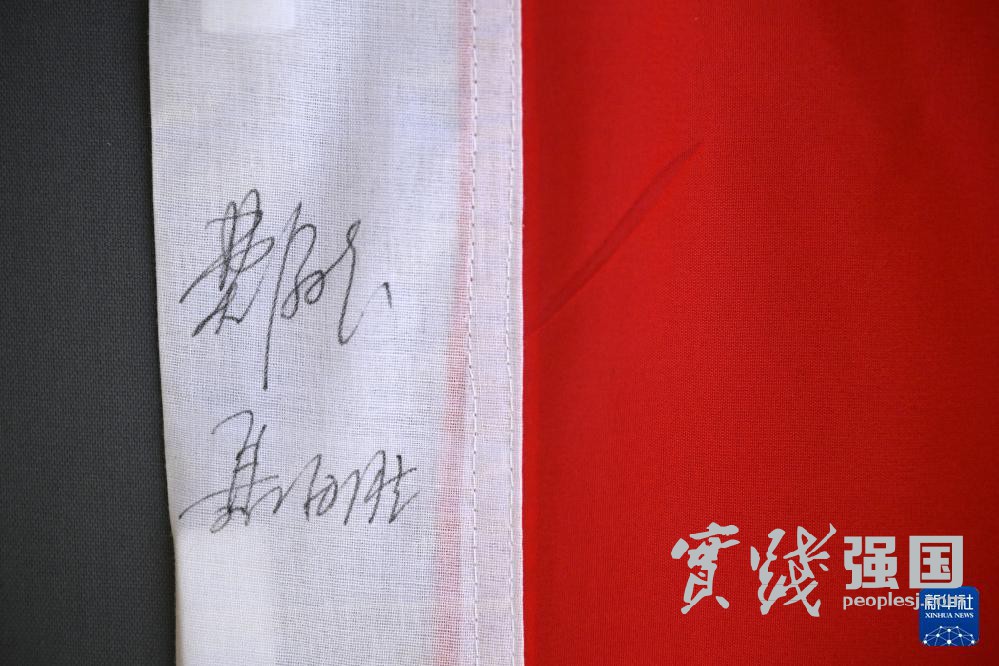 费俊龙
聂海胜
實踐强国
peoplesj.
新华社
XINHUA NEWS